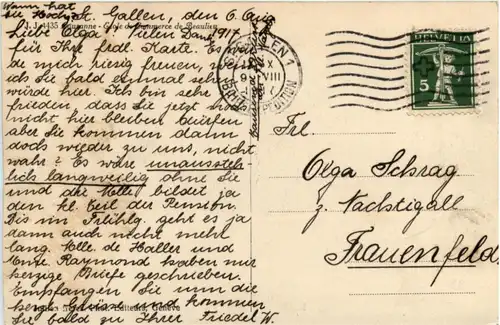 Wann hat
sie Hochzeit
St. Gallen, den 6. Aug.
1917.
J. J. 4435 Lausanne - Ecole de Commerce de Beaulieu
Liebe Olga! Vielen Dank
für Ihre frdl. Karte. Es
de mich riesig freuen,
Sie bald einmal
würde hier. Ich bin sehr
frieden, dass Sie jetzt noch
nicht hier bleiben dürfen
aber Sie kommen dann
doch wieder zu uns, nicht
wahr? Es wäre unaussteh-
lich langweilig ohne Sie
und der Melle bildet ja
den kl. Teil der Pension.
Bis im Frühlg. geht es ja
dann auch nicht mehr
lang. Melle. de Haller und
Raymond haben mir
herzige Briefe geschrieben.
Empfangen Sie nun die
besten Grüsse und kommen
Sie bald zu Ihrer Friedel W.
Edit., Genève
GALLEN 1
VIII
HELVETIA
5
Frl.
Olga Schrag
z. Nachtigall
Frauenfeld